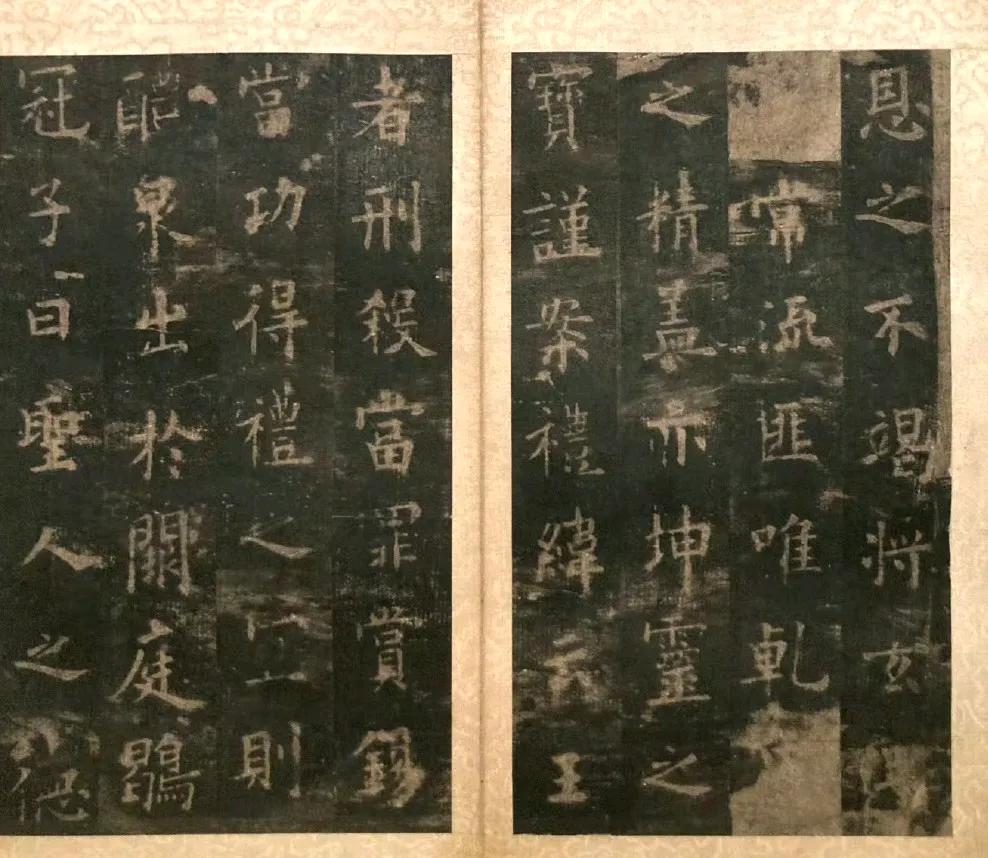 息之不竭將玄
常流匪唯乾
之精蓋亦坤靈之
寶謹案禮緯云王
者刑殺當罪賞錫
當功得禮之則
醴泉出於闕庭鶡
冠子曰聖人之德